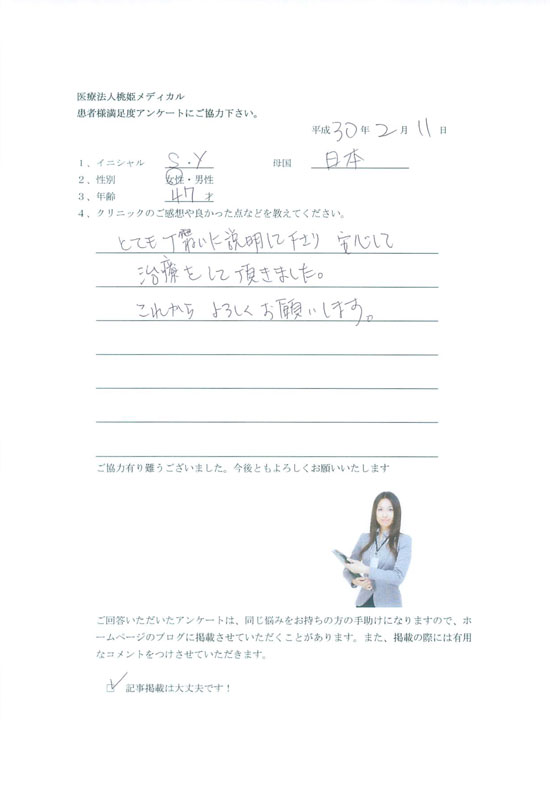 医療法人桃姫メディカル
患者様満足度アンケートにご協力下さい。
平成30年2月11日
1、イニシャル S.Y 母国 日本
2、性別 女性・男性
3、年齢 47才
4、クリニックのご感想や良かった点などを教えてください。
とても丁寧に説明して下さり 安心して
治療をして頂きました。
これから よろしくお願いします。
ご協力有り難うございました。今後ともよろしくお願いいたします
ご回答いただいたアンケートは、同じ悩みをお持ちの方の手助けになりますので、ホ
ームページのブログに掲載させていただくことがあります。また、掲載の際には有用
なコメントをつけさせていただきます。
記事掲載は大丈夫です！